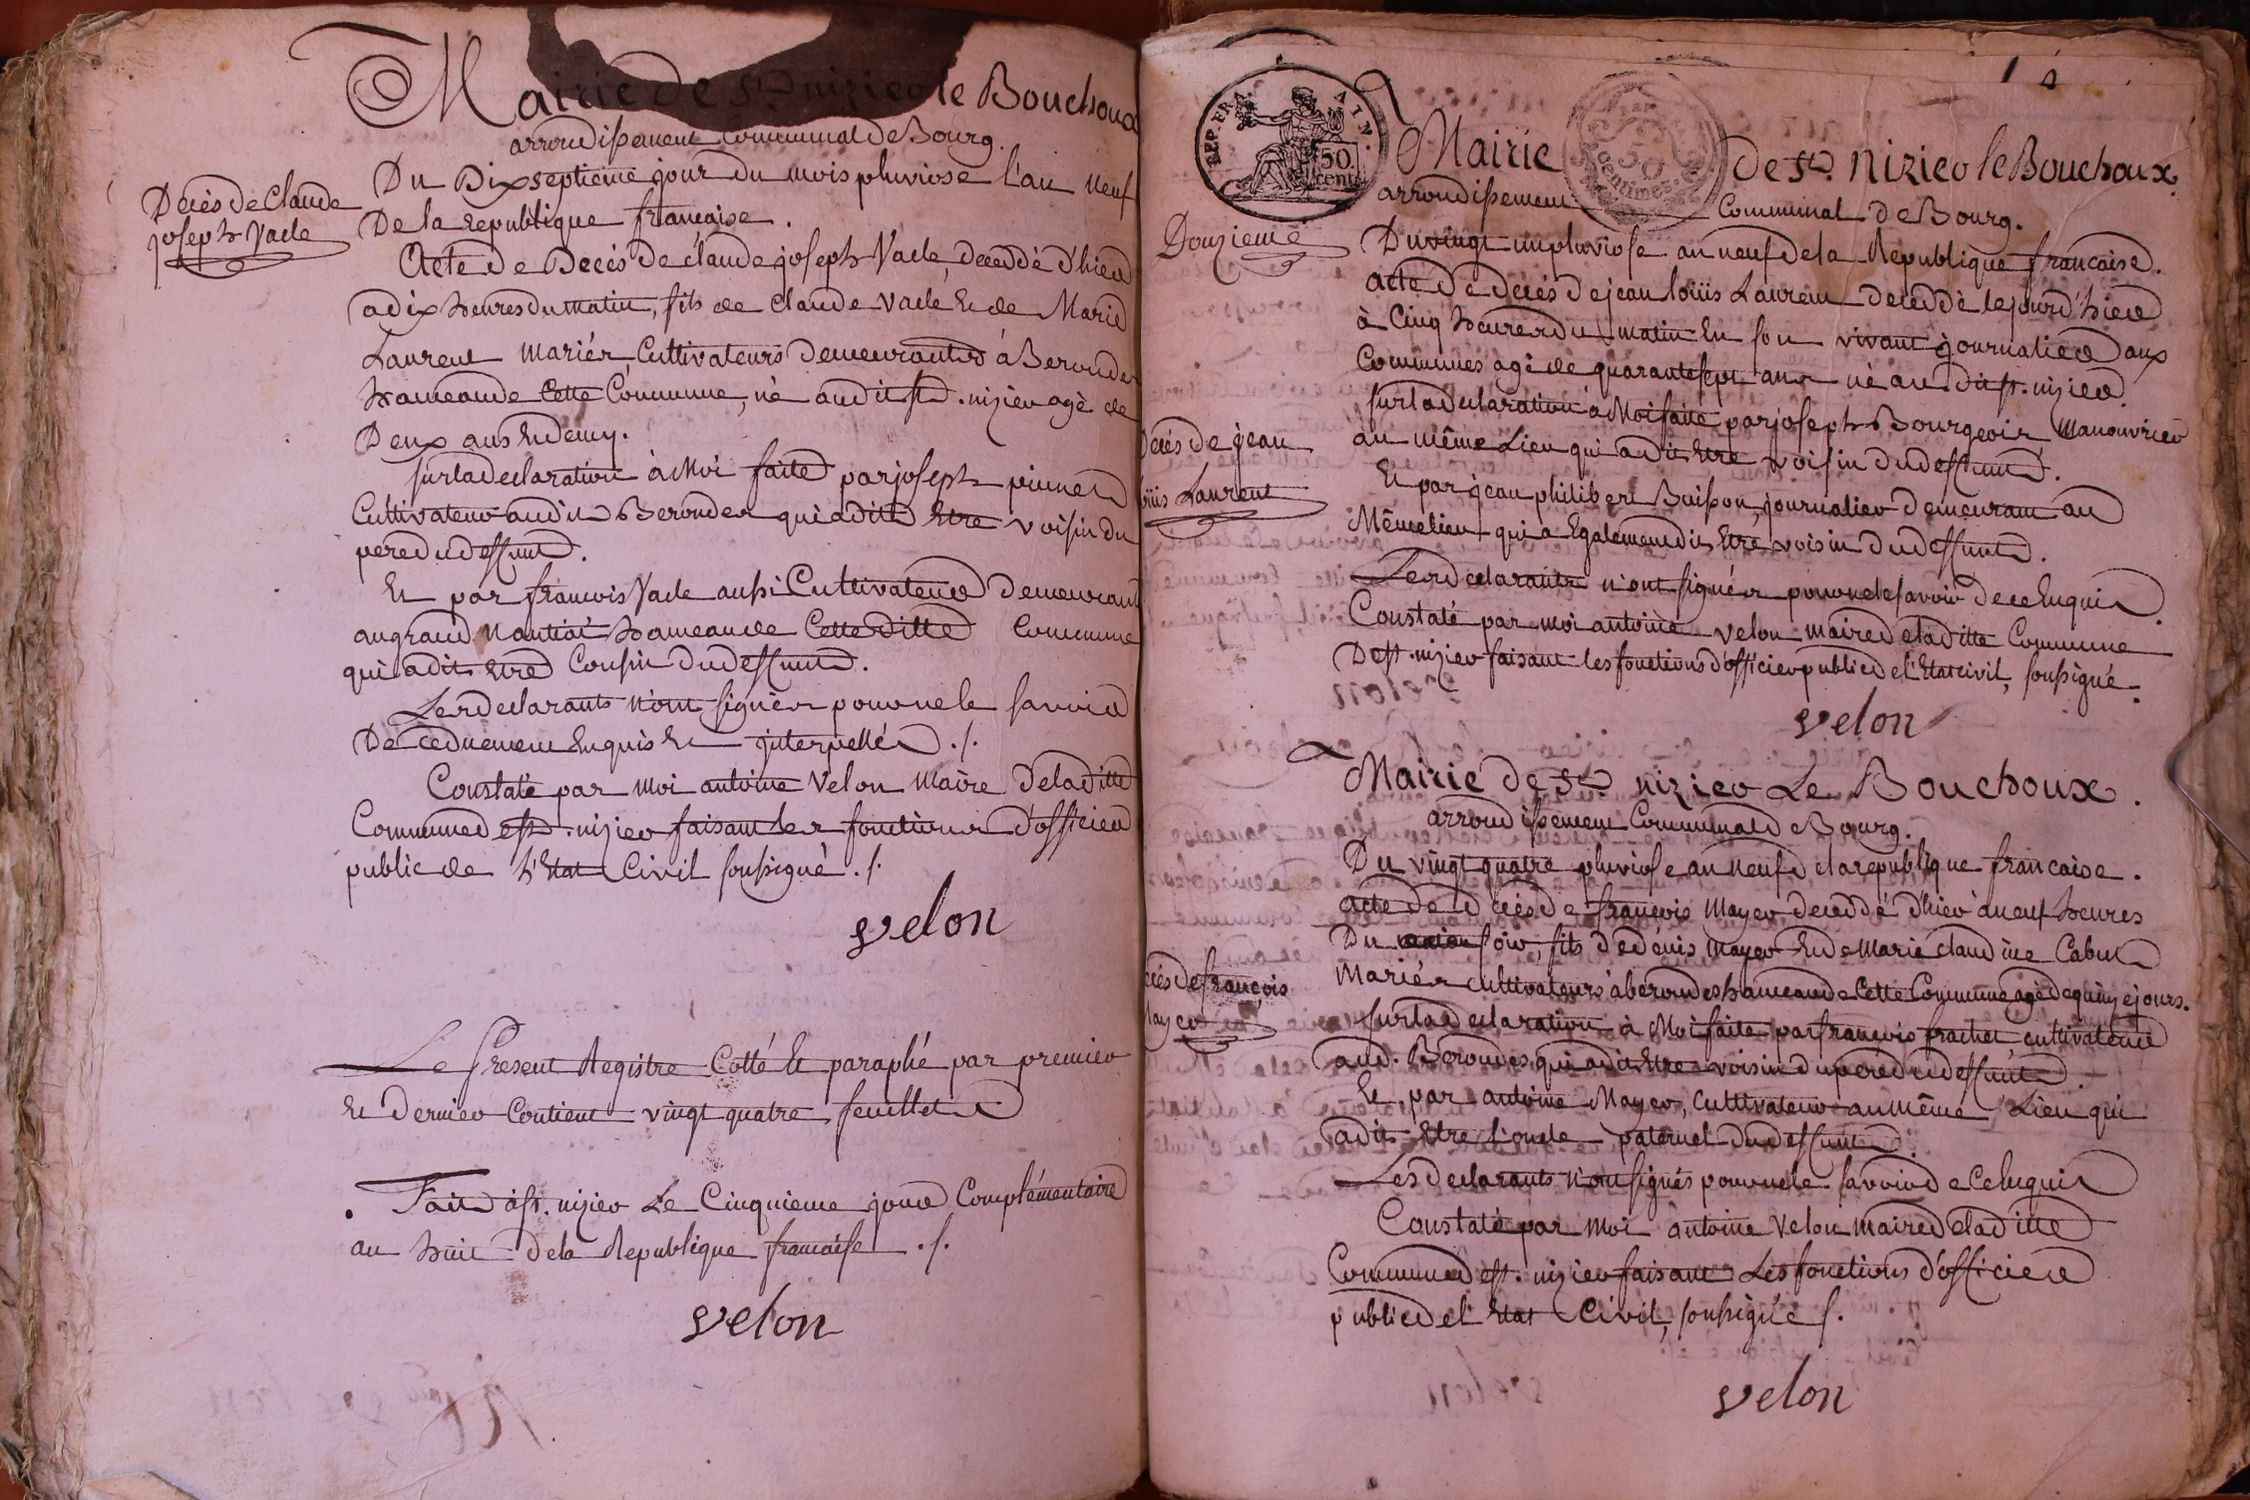 Mairie de St. nizier le Bouchoux
arrondissement Communal de Bourg.
Du Dix septieme jour du mois pluviose l'an neuf
De la republique francaise.
Decès de Claude
joseph Vacle
Acte de Decès de claude joseph Vacle, decedde d'hier
a dix heures du matin, fils de Claude Vacle Et de Marie
Laurent mariés, Cultivateurs Demeurants à Beroudes
hameau de Cette Commune, nè audit st. nizier agè de
Deux ans Et demy.
sur la declaration à Moi faite par joseph
Cultivateur audit Beroudes qui a dit Etre voisin du
pere du deffunt.
Et par francois Vacle aussi Cultivateur Demeurant
au grand Nantiat hameau de Cette ditte Commune
qui a dit Etre Cousin du deffunt.
Les declarants n'ont signés pour ne le savoir
De ce duement Enquis Et interpellés ./.
Constaté par moi antoine Velon Maire de la ditte
Commune de st. nizier faisant les fonctions d'officier
public de l'Etat Civil soussigné ./.
velon
Le Present Registre Cotté Et paraphé par premier
Et dernier Contient vingt quatre feuillets
Fait à st. nizier Le Cinquieme jour Complémentaire
an huit de la Republique francaise ./.
velon
REP. FRA. AIN.
50. cent.
50 centimes
Mairie de St. Nizier le Bouchoux
arrondissement Communal de Bourg.
Douzieme
Du vingt un pluviose an neuf de la Republique francaise.
Acte de decès de jean loüis Laurent deceddè le jour d'hier
à Cinq heures du matin En son vivant journalier aux
Communes agè de quarante sept ans nè au dit st. nizier
sur la declaration à Moi faite par joseph Bourgeois Manouvrier
au même Lieu qui a dit Etre voisin du deffunt.
Decès de jean
loüis Laurent
Et par jean philibert Buisson, journalier demeurant au
Même lieu qui a Egalement dit Etre voisin du deffunt.
Les declarants n'ont signés pour ne le savoir de ce Enquis
Constaté par moi antoine velon maire de la ditte Commune
De st. nizier faisant les fonctions d'officier public de l'Etat civil, soussigné.
velon
Mairie de St. nizier Le Bouchoux.
arrondissement Communal de Bourg.
Du vingt quatre pluviose an neuf de la republique francaise.
acte de decès de francois Mayer deceddé d'hier à neuf heures
Du soir, fils de denis Mayer Et de Marie claudine Cabut
Mariés cultivateurs à beroudes hameau de Cette Commune agè de quinze jours.
Decès de francois
Mayer
sur la declaration à Moi faite par francois frachet cultivateur
aud. Beroudes qui a dit Etre voisin du pere du deffunt.
Et par antoine Mayer, Cultivateur au même Lieu qui
a dit Etre l'oncle paternel du deffunt.
Les declarants n'ont signés pour ne le savoir de Ce Enquis
Constaté par Moi antoine Velon maire de la ditte
Commune de st. nizier faisant Les fonctions d'officier
public de l'Etat Civil, soussigné ./.
velon